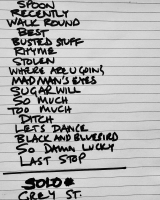 SPOON
RECENTLY
WALK ROUND
BEST
BUSTED STUFF
RHYME
STOLEN
WHERE ARE U GOING
MAD MAN'S EYES
SUGAR WILL
SO MUCH
TOO MUCH
DITCH
LET'S DANCE
BLACK AND BLUEBIRD
SO DAMN LUCKY
LAST STOP
SOLO
GREY ST.